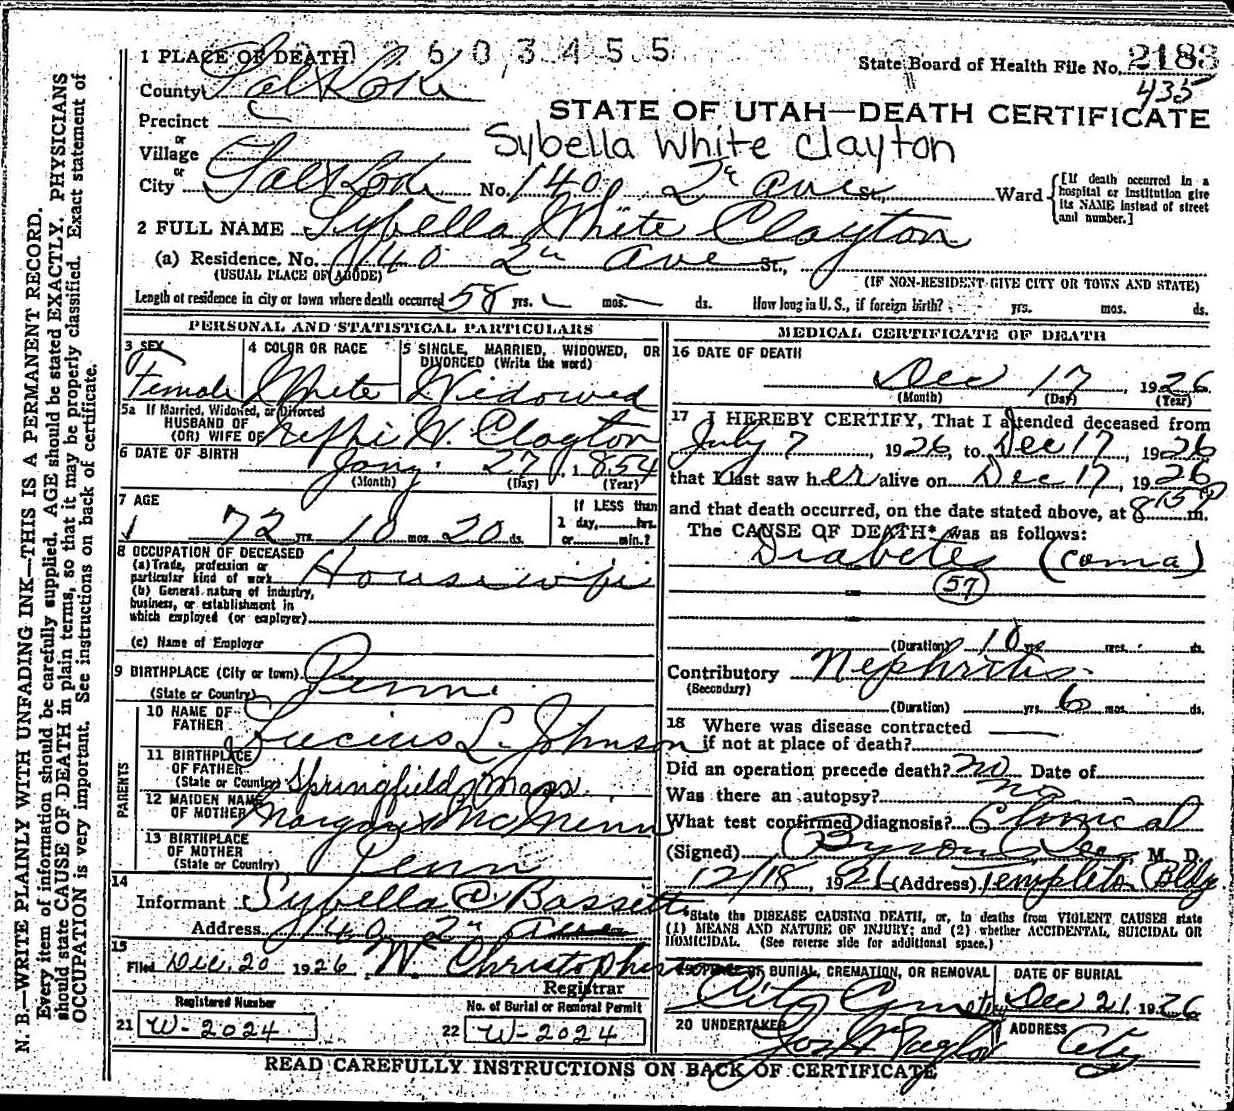 2603455
1 PLACE OF DEATH
State Board of Health File No. 2183
435
County Salt Lake
STATE OF UTAH—DEATH CERTIFICATE
Precinct
or
Village
Sybella White Clayton
or
City Salt Lake No. 140 2" Ave St., Ward
[If death occurred in a hospital or institution give its NAME instead of street and number.]
2 FULL NAME Sybella White Clayton
(a) Residence. No. 140 2" Ave St.,
(USUAL PLACE OF ABODE) (IF NON-RESIDENT GIVE CITY OR TOWN AND STATE)
Length of residence in city or town where death occurred 58 yrs. — mos. — ds. How long in U. S., if foreign birth? yrs. mos. ds.
PERSONAL AND STATISTICAL PARTICULARS
3 SEX
Female
4 COLOR OR RACE
White
5 SINGLE, MARRIED, WIDOWED, OR DIVORCED (Write the word)
Widowed
5a If Married, Widowed, or Divorced
HUSBAND OF
(OR) WIFE OF W. Clayton
6 DATE OF BIRTH Jany. 27, 1854
(Month) (Day) (Year)
7 AGE
72 yrs. 10 mos. 20 ds.
If LESS than
1 day, hrs.
or min.?
8 OCCUPATION OF DECEASED
(a) Trade, profession or
particular kind of work Housewife
(b) General nature of industry,
business, or establishment in
which employed (or employer)
(c) Name of Employer
9 BIRTHPLACE (City or town)
(State or Country) Penn.
PARENTS
10 NAME OF FATHER Lucius L. Johnson
11 BIRTHPLACE OF FATHER
(State or Country) Springfield Mass.
12 MAIDEN NAME OF MOTHER
13 BIRTHPLACE OF MOTHER
(State or Country) Penn
14
Informant Sybella C Bassett
Address 140 2" Ave
15
Filed Dec. 20 1926 W. Christopherson
Registrar
Registered Number
21 W-2024
No. of Burial or Removal Permit
22 W-2024
MEDICAL CERTIFICATE OF DEATH
16 DATE OF DEATH
Dec 17, 1926
(Month) (Day) (Year)
17 I HEREBY CERTIFY, That I attended deceased from
July 7, 1926, to Dec 17, 1926
that I last saw her alive on Dec 17, 1926
and that death occurred, on the date stated above, at 8 15 P m.
The CAUSE OF DEATH* was as follows:
Diabetes (coma)
57
(Duration) 10 yrs. mos. ds.
Contributory Nephritis
(Secondary)
(Duration) yrs. 6 mos. ds.
18 Where was disease contracted
if not at place of death?
Did an operation precede death? no Date of
Was there an autopsy? no
What test confirmed diagnosis? Clinical
(Signed) Byron Rees, M. D.
12/18, 1926 (Address) Templeton Bldg
*State the DISEASE CAUSING DEATH, or, in deaths from VIOLENT CAUSES state
(1) MEANS AND NATURE OF INJURY; and (2) whether ACCIDENTAL, SUICIDAL OR
HOMICIDAL. (See reverse side for additional space.)
19 PLACE OF BURIAL, CREMATION, OR REMOVAL
City Cemetery
DATE OF BURIAL
Dec 21 1926
20 UNDERTAKER
Jos Wm Taylor
ADDRESS
City
READ CAREFULLY INSTRUCTIONS ON BACK OF CERTIFICATE
N. B.—WRITE PLAINLY WITH UNFADING INK—THIS IS A PERMANENT RECORD.
Every item of information should be carefully supplied. AGE should be stated EXACTLY. PHYSICIANS
should state CAUSE OF DEATH in plain terms, so that it may be properly classified. Exact statement of
OCCUPATION is very important. See instructions on back of certificate.